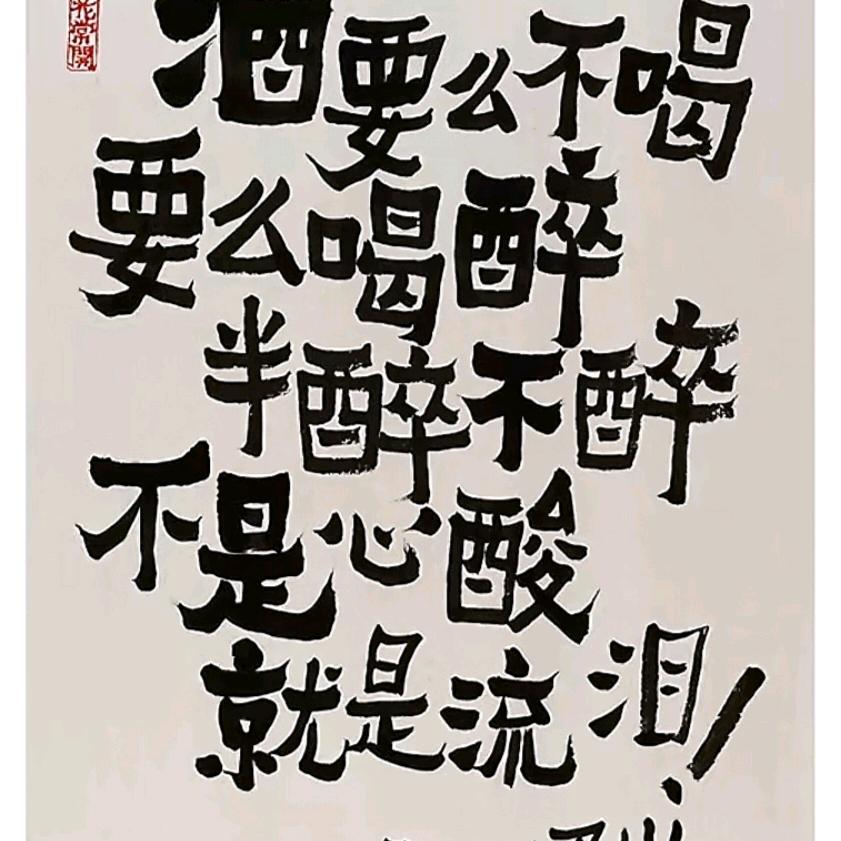 花常開
酒要么不喝
要么喝醉
半醉不醉
不是心酸
就是流泪！